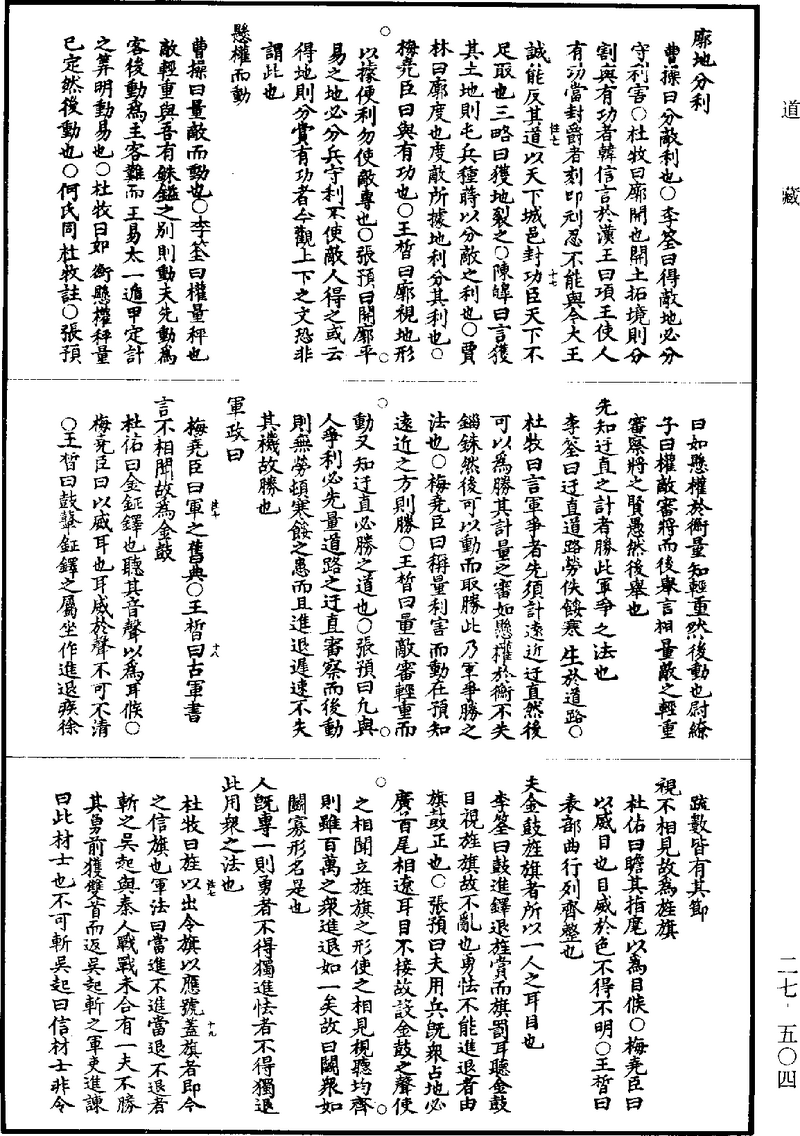 道藏
廓地分利
曹操曰分敵利也○李筌曰得敵地必分
守利害○杜牧曰廓開也開土拓境則分
割與有功者韓信言於漢王曰項王使人
有功當封爵者刻印刓忍不能與今大王
誠能反其道以天下城邑封功臣天下不
足取也三略曰獲地裂之○陳皥曰言獲
其土地則屯兵種蒔以分敵之利也○賈
林曰廓度也度敵所據地利分其利也○
梅堯臣曰與有功也○王晳曰廓視地形
以據便利勿使敵專也○張預曰開廓平
易之地必分兵守利不使敵人得之或云
得地則分賞有功者今觀上下之文恐非
謂此也
懸權而動
曹操曰量敵而動也○李筌曰權量秤也
敵輕重與吾有銖鎰之別則動夫先動爲
客後動爲主客難而主易太一遁甲定計
之筭明動易也○杜牧曰如衡懸權秤量
已定然後動也○何氏同杜牧註○張預
曰如懸權於衡量知輕重然後動也尉繚
子曰權敵審將而後舉言相量敵之輕重
審察將之賢愚然後舉也
先知迂直之計者勝此軍爭之法也
李筌曰迂直道路勞佚餒寒生於道路○
杜牧曰言軍爭者先須計遠近迂直然後
可以爲勝其計量之審如懸權於衡不失
錙銖然後可以動而取勝此乃軍爭勝之
法也○梅堯臣曰稱量利害而動在預知
遠近之方則勝○王晳曰量敵審輕重而
動又知迂直必勝之道也○張預曰凡與
人爭利必先量道路之迂直審察而後動
則無勞頓寒餒之患而且進退遲速不失
其機故勝也
軍政曰
梅堯臣曰軍之舊典○王晳曰古軍書
言不相聞故爲金鼓
杜佑曰金鉦鐸也聽其音聲以爲耳候○
梅堯臣曰以威耳也耳威於聲不可不清
○王晳曰鼓鼙鉦鐸之屬坐作進退疾徐
疏數皆有其節
視不相見故爲旌旗
杜佑曰瞻其指麾以爲目候○梅堯臣曰
以威目也目威於色不得不明○王晳曰
表部曲行列齊整也
夫金鼓旌旗者所以一人之耳目也
李筌曰鼓進鐸退旌賞而旗罰耳聽金鼓
目視旌旗故不亂也勇怯不能進退者由
旗鼓正也○張預曰夫用兵旣衆占地必
廣首尾相遼耳目不接故設金鼓之聲使
之相聞立旌旗之形使之相見視聽均齊
則雖百萬之衆進退如一矣故曰鬭衆如
鬭寡形名是也
人旣專一則勇者不得獨進怯者不得獨退
此用衆之法也
杜牧曰旌以出令旗以應號蓋旗者即今
之信旗也軍法曰當進不進當退不退者
斬之吳起與秦人戰戰未合有一夫不勝
其勇前獲雙首而返吳起斬之軍吏進諫
曰此材士也不可斬吳起曰信材士非令
二七·五〇四